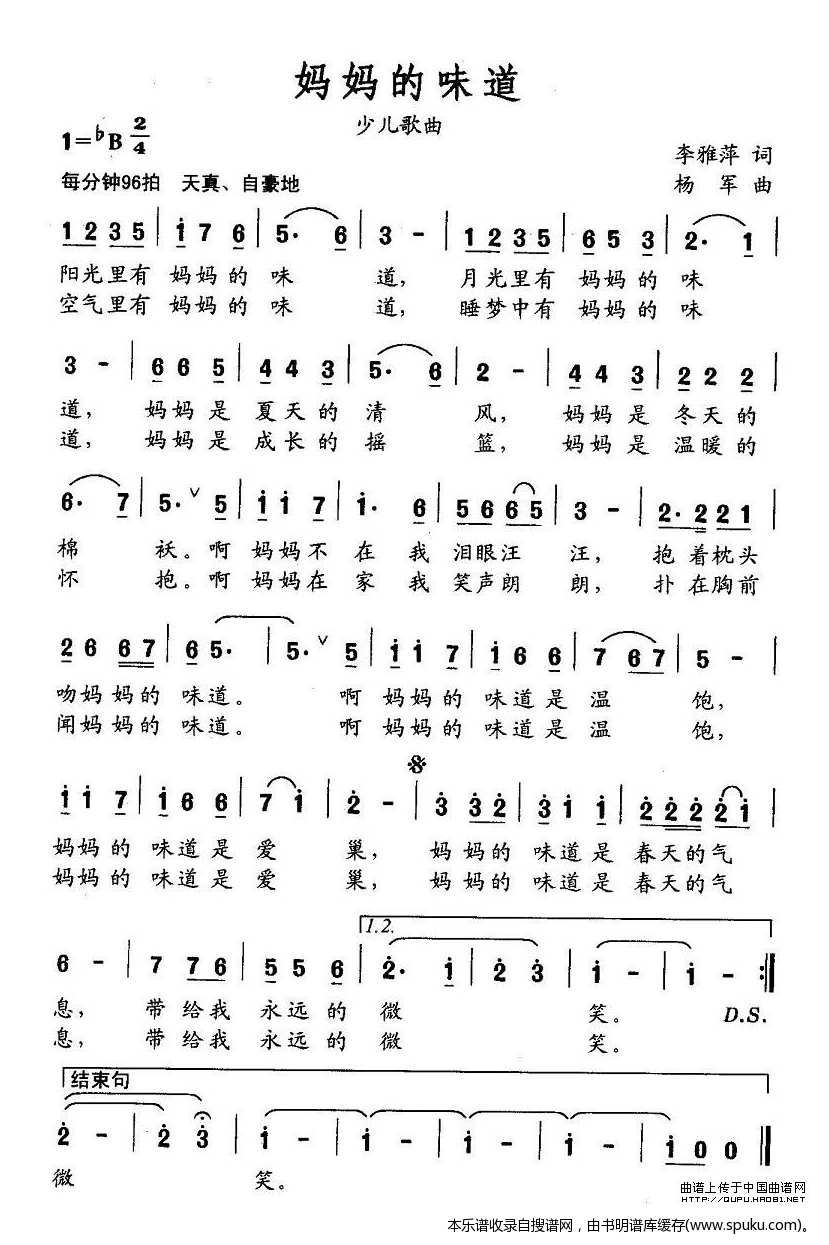 妈妈的味道
少儿歌曲
1=♭B 2/4
李雅萍 词
每分钟96拍 天真、自豪地
杨 军 曲
1 2 3 5 | i 7 6 | 5· 6 | 3 - | 1 2 3 5 | 6 5 3 | 2· 1 |
阳光里有 妈妈的 味 道, 月光里有 妈妈的 味
空气里有 妈妈的 味 道, 睡梦中有 妈妈的 味
3 - | 6 6 5 | 4 4 3 | 5· 6 | 2 - | 4 4 3 | 2 2 2 |
道, 妈妈是 夏天的 清 风, 妈妈是 冬天的
道, 妈妈是 成长的 摇 篮, 妈妈是 温暖的
6· 7 | 5· ∨ 5 | i i 7 | i· 6 | 5 6 6 5 | 3 - | 2· 2 2 1 |
棉 袄。啊 妈妈不 在 我 泪眼汪 汪, 抱着枕头
怀 抱。啊 妈妈在 家 我 笑声朗 朗, 扑在胸前
2 6 6 7 | 6 5· | 5· ∨ 5 | i i 7 | i 6 6 | 7 6 7 | 5 - |
吻妈妈的 味道。 啊 妈妈的 味道是 温 饱,
闻妈妈的 味道。 啊 妈妈的 味道是 温 饱,
𝄋
i i 7 | i 6 6 | 7 i | 2 - | 3 3 2 | 3 i i | 2 2 2 2 i |
妈妈的 味道是 爱 巢, 妈妈的 味道是 春天的气
妈妈的 味道是 爱 巢, 妈妈的 味道是 春天的气
1.2.
6 - | 7 7 6 | 5 5 6 | 2· i | 2 3 | i - | i - :||
息, 带给我 永远的 微 笑。 D.S.
息, 带给我 永远的 微 笑。
结束句
2 - | 2 3 | i - | i - | i - | i - | i 0 0 ||
微 笑。
曲谱上传于中国曲谱网
http://QUPU.HAO81.NET
本乐谱收录自搜谱网，由书明谱库缓存(www.spuku.com)。